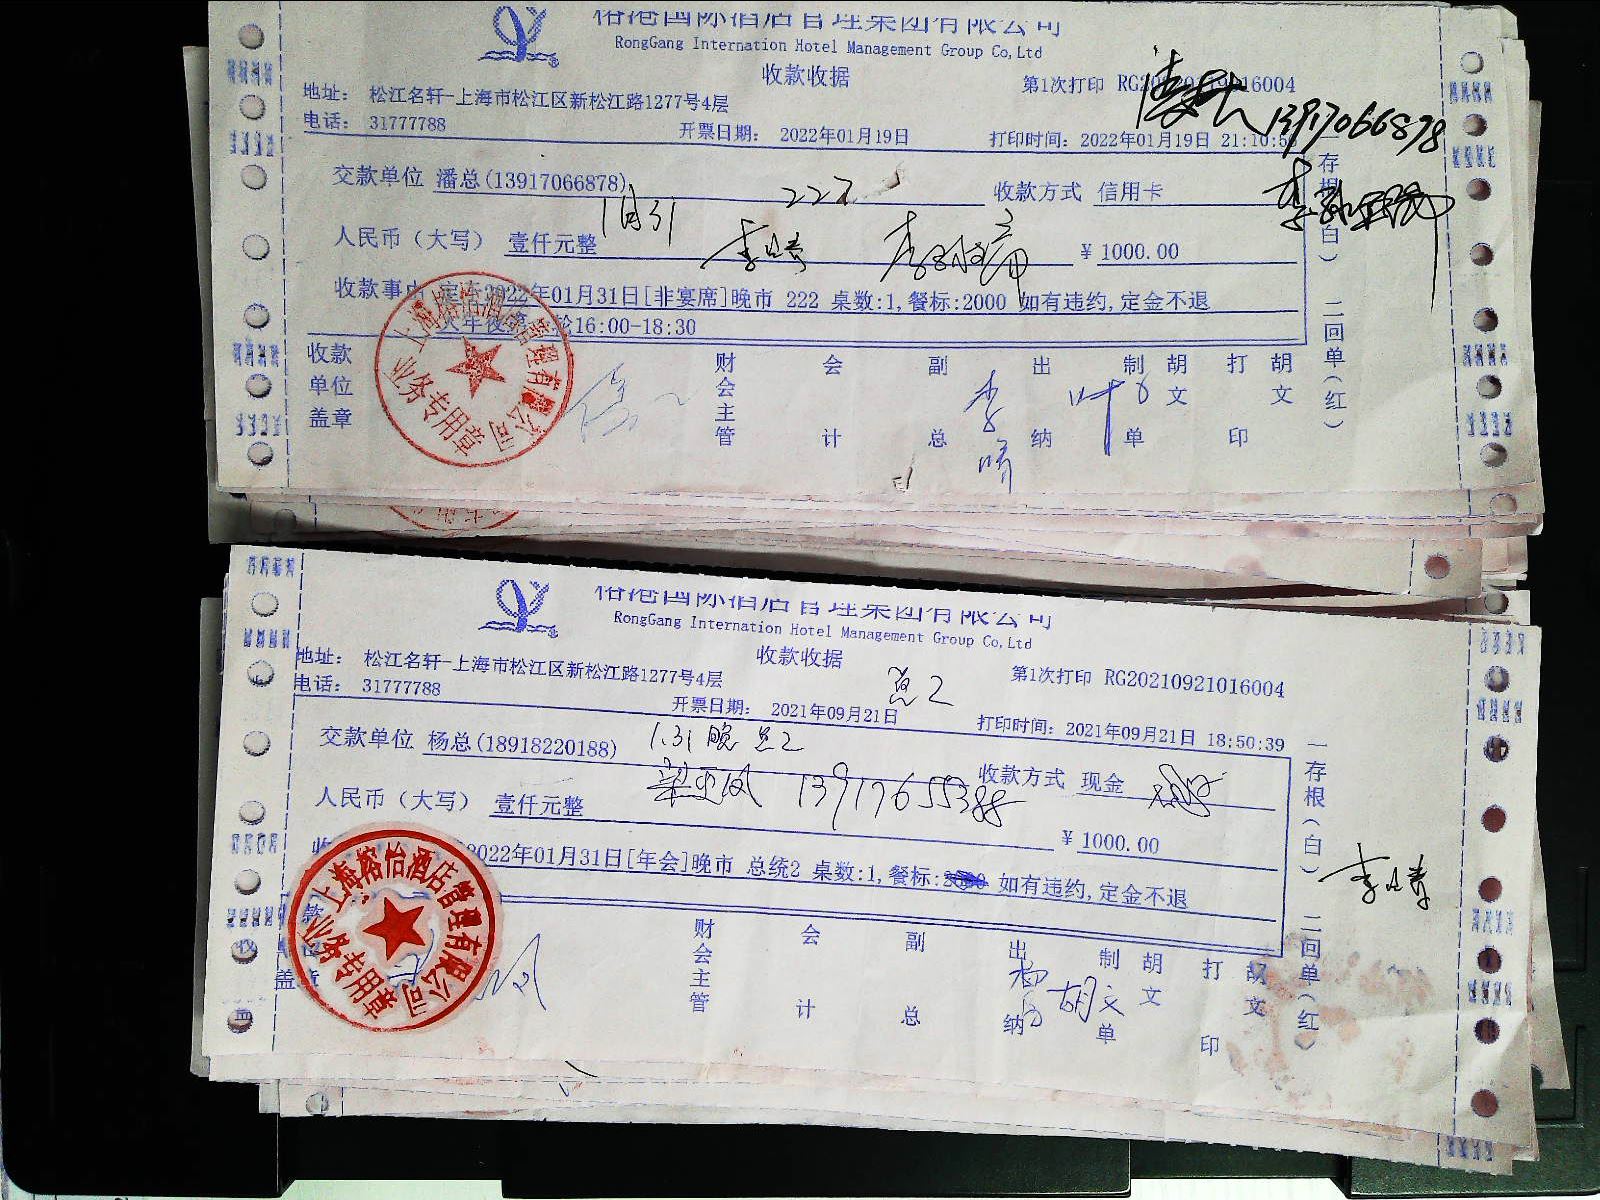 榕港国际酒店管理集团有限公司
RongGang Internation Hotel Management Group Co,Ltd
收款收据
第1次打印
地址: 松江名轩-上海市松江区新松江路1277号4层
电话: 31777788
开票日期: 2022年01月19日
打印时间: 2022年01月19日 21:10:5
13917066878
交款单位 潘总(13917066878)
222
收款方式 信用卡
1月31
人民币(大写) 壹仟元整
¥ 1000.00
收款事由 定於2022年01月31日[非宴席]晚市 222 桌数:1,餐标:2000 如有违约,定金不退
轮16:00-18:30
收款单位盖章
财会主管 会计 副总 出纳 制单 胡文 打印 胡文
李晴 叶
上海榕怡酒店管理有限公司
业务专用章
一存根(白) 二回单(红)
榕港国际酒店管理集团有限公司
RongGang Internation Hotel Management Group Co,Ltd
收款收据
第1次打印 RG20210921016004
地址: 松江名轩-上海市松江区新松江路1277号4层
电话: 31777788
总2
开票日期: 2021年09月21日
打印时间: 2021年09月21日 18:50:39
交款单位 杨总(18918220188)
1.31 晚 总2
收款方式 现金
梁亚凤
人民币(大写) 壹仟元整
¥ 1000.00
2022年01月31日[年会]晚市 总统2 桌数:1,餐标: 如有违约,定金不退
盖章
财会主管 会计 副总 出纳 制单 胡文 打印 胡文
胡文
上海榕怡酒店管理有限公司
业务专用章
一存根(白) 二回单(红)